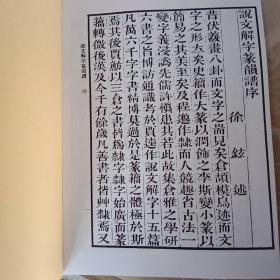 說文解字篆韻譜序
徐鉉述
昔伏羲畫八卦而文字之耑見矣倉頡模鳥迹而文
字之形立矣史籒作大篆以潤飾之李斯變小篆以
簡易之其美至矣及程邈作隸而人競趣省古法一
變字義浸譌先儒許慎患其若此故集倉雅之學研
六書之旨博訪通識考於賈逵作說文解字十五篇
凡萬六千字字書精博莫過於是篆籒之體極於斯
焉其後賈魴以三倉之書皆爲隸字隸字始廣而篆
籒轉微後漢及今千有餘歲凡善書者皆艸隸焉又
說文解字篆韻譜 序